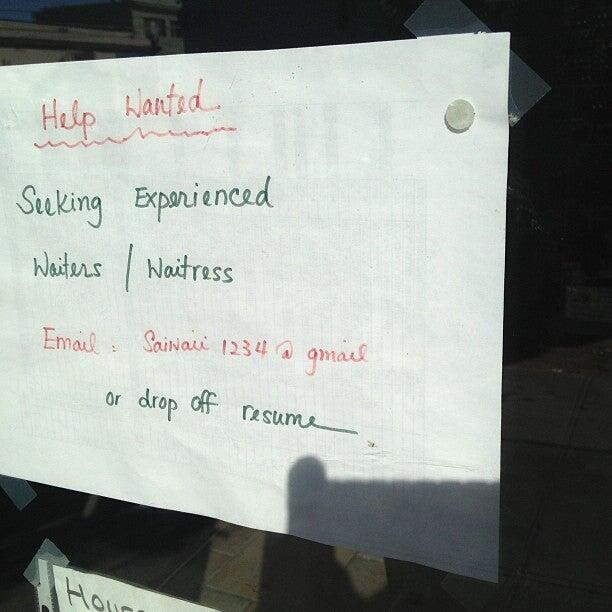 Help Wanted
Seeking Experienced
Waiters / Waitress
Email : Saiwaii 1234 @ gmail
or drop off resume